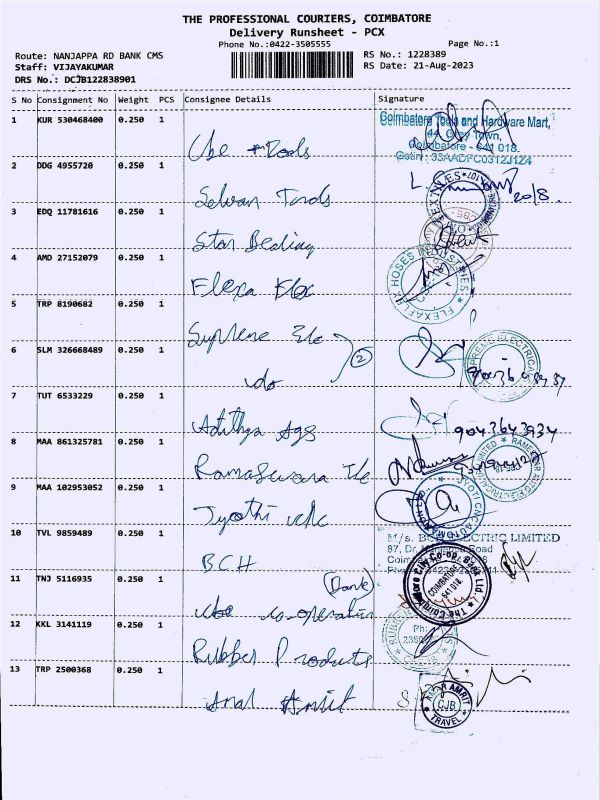 THE PROFESSIONAL COURIERS, COIMBATORE
Delivery Runsheet - PCX
Phone No.:0422-3505555
Page No.:1
Route: NANJAPPA RD BANK CMS
RS No.: 1228389
Staff: VIJAYAKUMAR
RS Date: 21-Aug-2023
DRS No.: DCJB122838901
S No Consignment No Weight PCS Consignee Details Signature
1 KUR 530468400 0.250 1
Coimbatore Tools and Hardware Mart,
Town,
Coimbatore - 641 018.
Cbe Tools
2 DDG 4955720 0.250 1
20/8.
Selvan
3 EDQ 11781616 0.250 1
Star
4 AMD 27152079 0.250 1
FLEXAFLEX HOSES INDUSTRIES
Flexa Flex
5 TRP 8190682 0.250 1
Supreme Ele
6 SLM 326668489 0.250 1
SUPREME ELECTRICAL
do
2
7 TUT 6533229 0.250 1
9043643934
Adithya Ags
8 MAA 861325781 0.250 1
Rameswara
9 MAA 102953052 0.250 1
JYOTI CNC AUTOMATION
Jyothi
10 TVL 9859489 0.250 1
M/s. BCH ELECTRIC LIMITED
87, Dr. Road
BCH
11 TNJ 5116935 0.250 1
COIMBATORE
641 018
(Bank)
Cbe co-operative
12 KKL 3141119 0.250 1
Ph:
Rubber Products
13 TRP 2500368 0.250 1
AMRIT
CJB
TRAVEL
Amrit